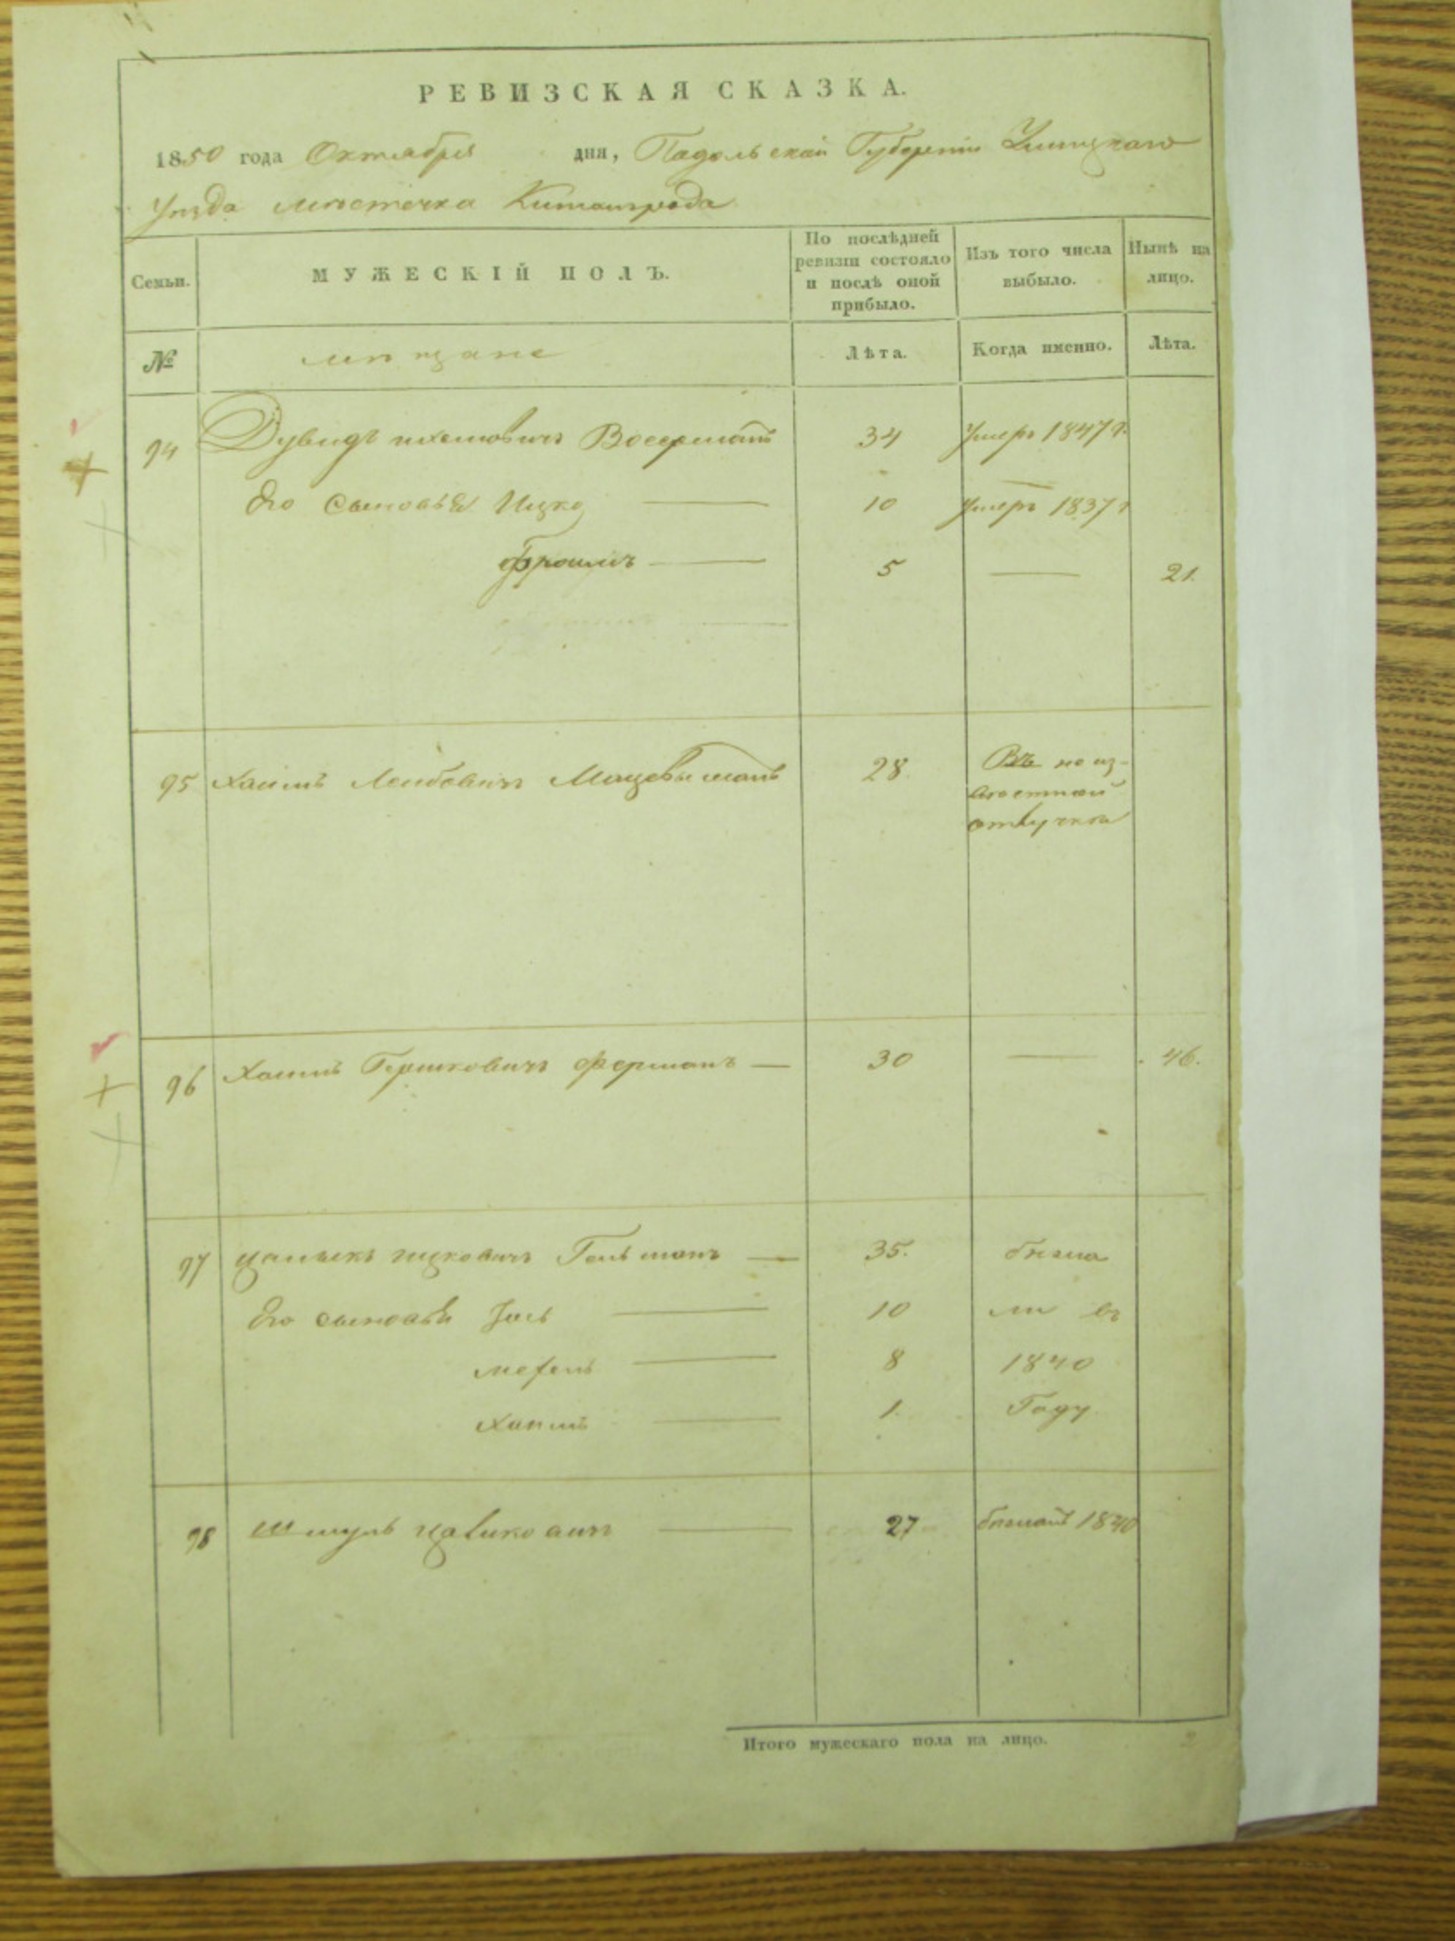 РЕВИЗСКАЯ СКАЗКА.
1850 года Октября дня, Падольской Губернии Ушицкаго
Уѣзда мѣстечка Китайгрода
Семьи. МУЖЕСКІЙ ПОЛЪ. По послѣдней ревизіи состояло и послѣ оной прибыло. Изъ того числа выбыло. Нынѣ на лицо.
№ мѣщане Лѣта. Когда именно. Лѣта.
94 Дувидъ Восерманъ 34 Умеръ 1847 г.
Его сыновья Ицко 10 Умеръ 1837 г
Фроимъ 5 21.
95 Хаимъ Лейбовичъ 28 Въ неиз-
вѣстной
отлучки
96 Хаимъ Гершковичъ Ферманъ 30 46.
97 Ицковичъ Гольманъ 35. бѣжа
Его сыновья Іось 10 ли въ
Мотель 8 1840
Хаимъ 1. Году
98 Шмуль 27 бѣжалъ 1840
Итого мужескаго пола на лицо. 2